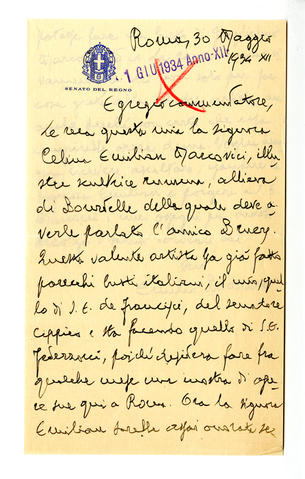 Roma, 30 Maggio
1934 XII
1 GIU 1934 Anno XII
SENATO DEL REGNO
Egregio commendatore,
le reca questa mia la signora
Celina Emilian Maccovici, illu-
stre scultrice rumena, allieva
di Bourdelle della quale deve a-
verle parlato l'amico
Questa valente artista ha già fatto
parecchi busti italiani, il mio, quel-
lo di S.E. de Francisci, del senatore
Cippico e sta facendo quello di S.E.
Federzoni, poiché desidera fare fra
qualche mese una mostra di ope-
re sue qui a Roma. Ora la signora
Emilian sarebbe assai onorata se